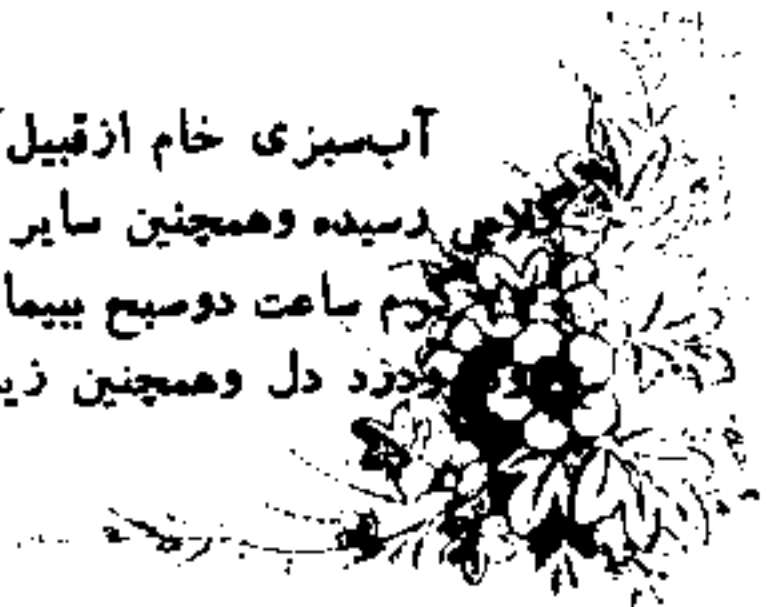 آب‌سبزی خام ازقبیل
رسیده وهمچنین سایر
ساعت دوصبح بیما
ودرد دل وهمچنین زی